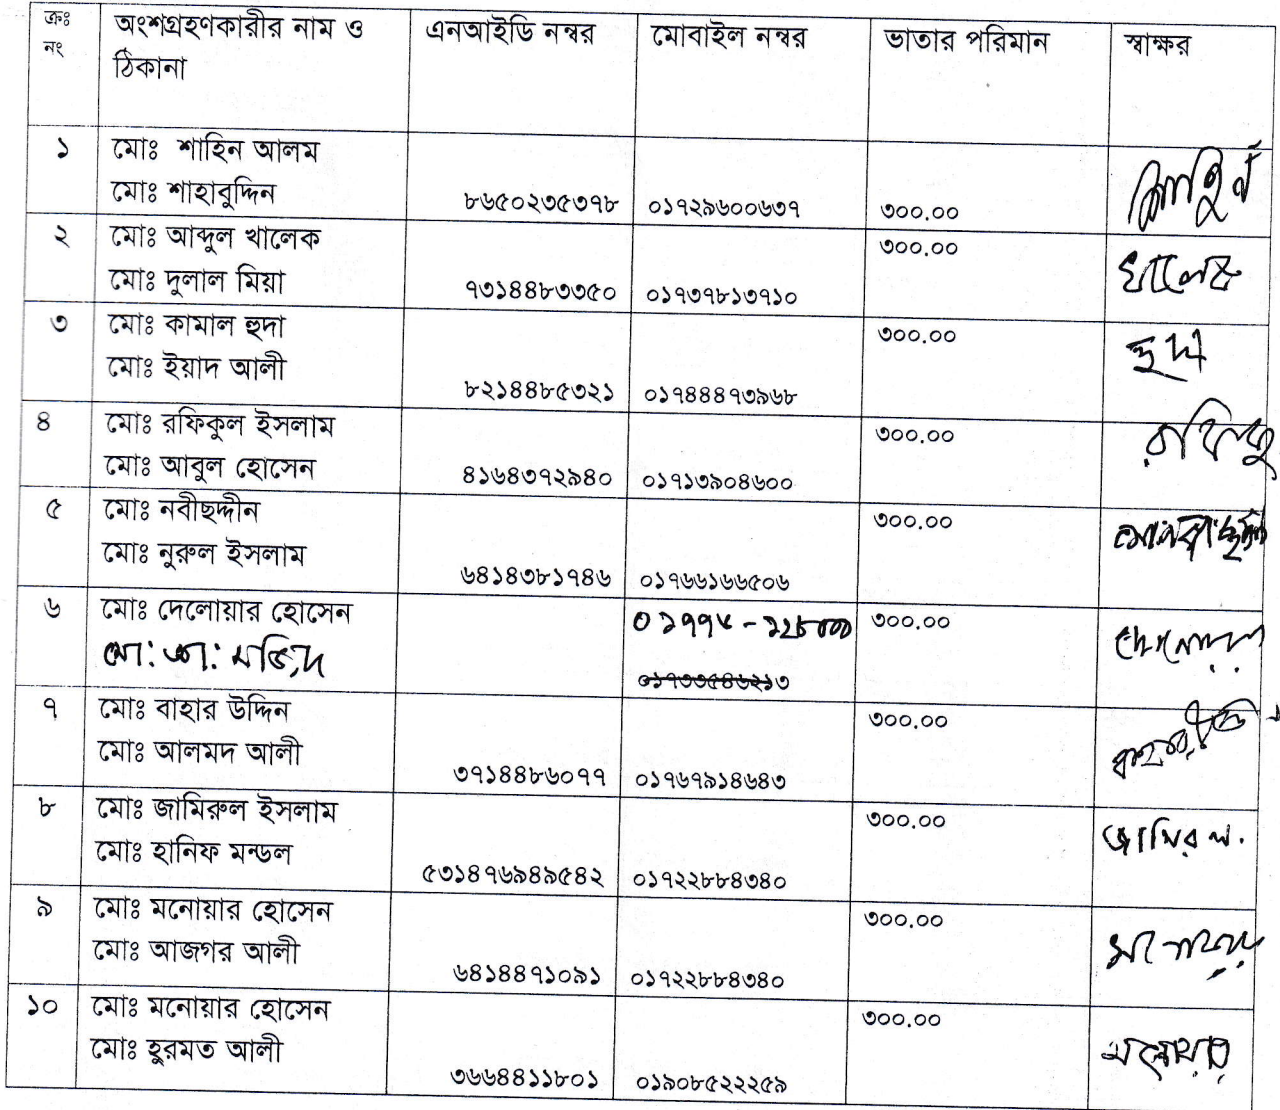 ক্রঃ নং	অংশগ্রহণকারীর নাম ও ঠিকানা	এনআইডি নম্বর	মোবাইল নম্বর	ভাতার পরিমান	স্বাক্ষর
১	মোঃ শাহিন আলম
মোঃ শাহাবুদ্দিন	৮৬৫০২৩৫৩৭৮	০১৭২৯৬০০৬৩৭	৩০০.০০
২	মোঃ আব্দুল খালেক
মোঃ দুলাল মিয়া	৭৩১৪৪৮৩৩৫০	০১৭৩৭৮১৩৭১০	৩০০.০০	খালেক
৩	মোঃ কামাল হুদা
মোঃ ইয়াদ আলী	৮২১৪৪৮৫৩২১	০১৭৪৪৪৭৩৯৬৮	৩০০.০০	হুদা
৪	মোঃ রফিকুল ইসলাম
মোঃ আবুল হোসেন	৪১৬৪৩৭২৯৪০	০১৭১৩৯০৪৬০০	৩০০.০০
৫	মোঃ নবীছদ্দীন
মোঃ নুরুল ইসলাম	৬৪১৪৩৮১৭৪৬	০১৭৬৬১৬৬৫০৬	৩০০.০০
৬	মোঃ দেলোয়ার হোসেন	৩০০.০০
মো: আ: মজিদ	০১৭৩৩৫৪৬২১৩
৭	মোঃ বাহার উদ্দিন
মোঃ আলমদ আলী	৩৭১৪৪৮৬০৭৭	০১৭৬৭৯১৪৬৪৩	৩০০.০০
৮	মোঃ জামিরুল ইসলাম
মোঃ হানিফ মন্ডল	৫৩১৪৭৬৯৪৯৫৪২	০১৭২২৮৮৪৩৪০	৩০০.০০	জামিরল.
৯	মোঃ মনোয়ার হোসেন
মোঃ আজগর আলী	৬৪১৪৪৭১০৯১	০১৭২২৮৮৪৩৪০	৩০০.০০
১০	মোঃ মনোয়ার হোসেন
মোঃ হুরমত আলী	৩৬৬৪৪১১৮০১	০১৯০৮৫২২২৫৯	৩০০.০০	মনোয়ার